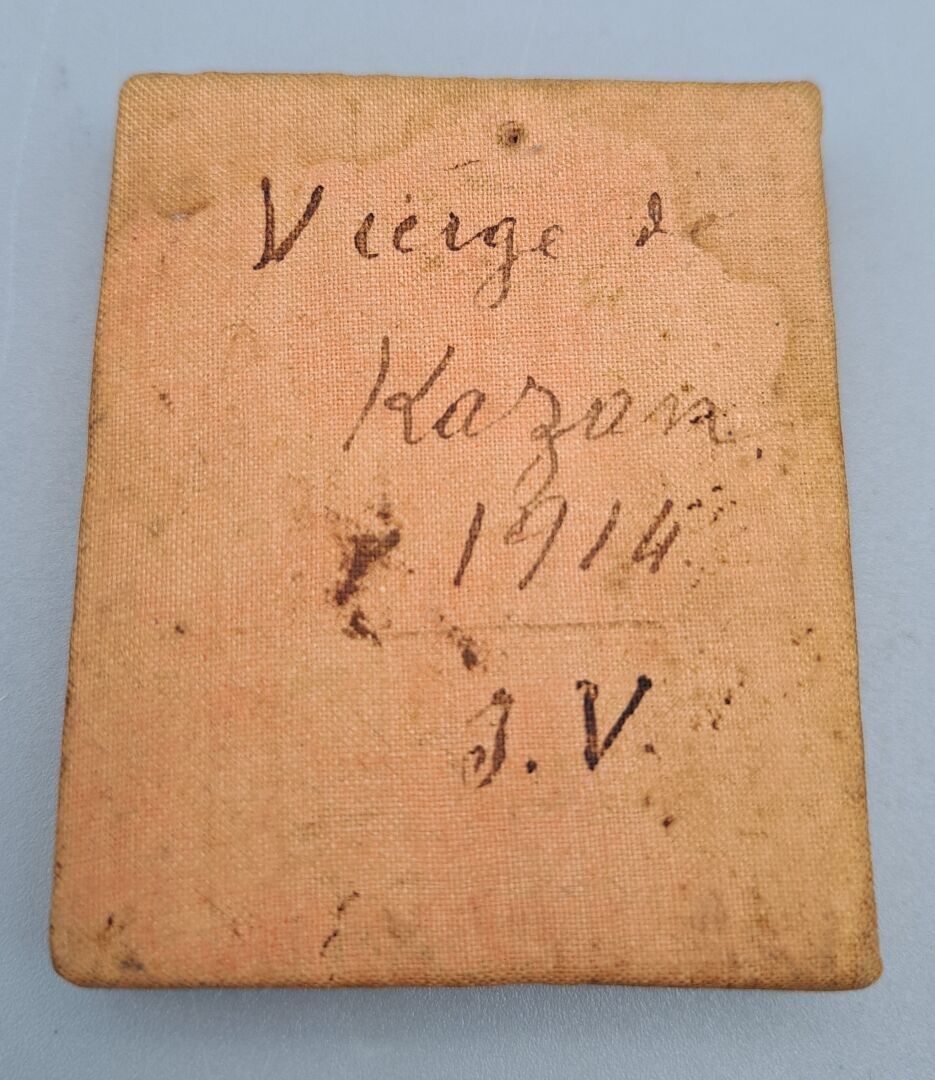 Vierge de
Kazan.
1914
J. V.